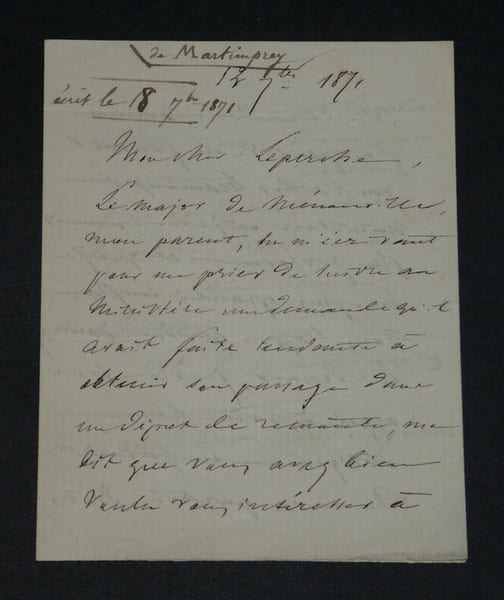 de Martimprey
12 7bre 1871
écrit le 18 7bre 1871
Mon cher Leperche,
Le major de Ménonville,
mon parent, en m'écrivant
pour me prier de suivre au
Ministère une demande qu'il
avait faite tendante à
obtenir son passage dans
un dépôt de remonte, me
dit que vous avez bien
voulu vous intéresser à